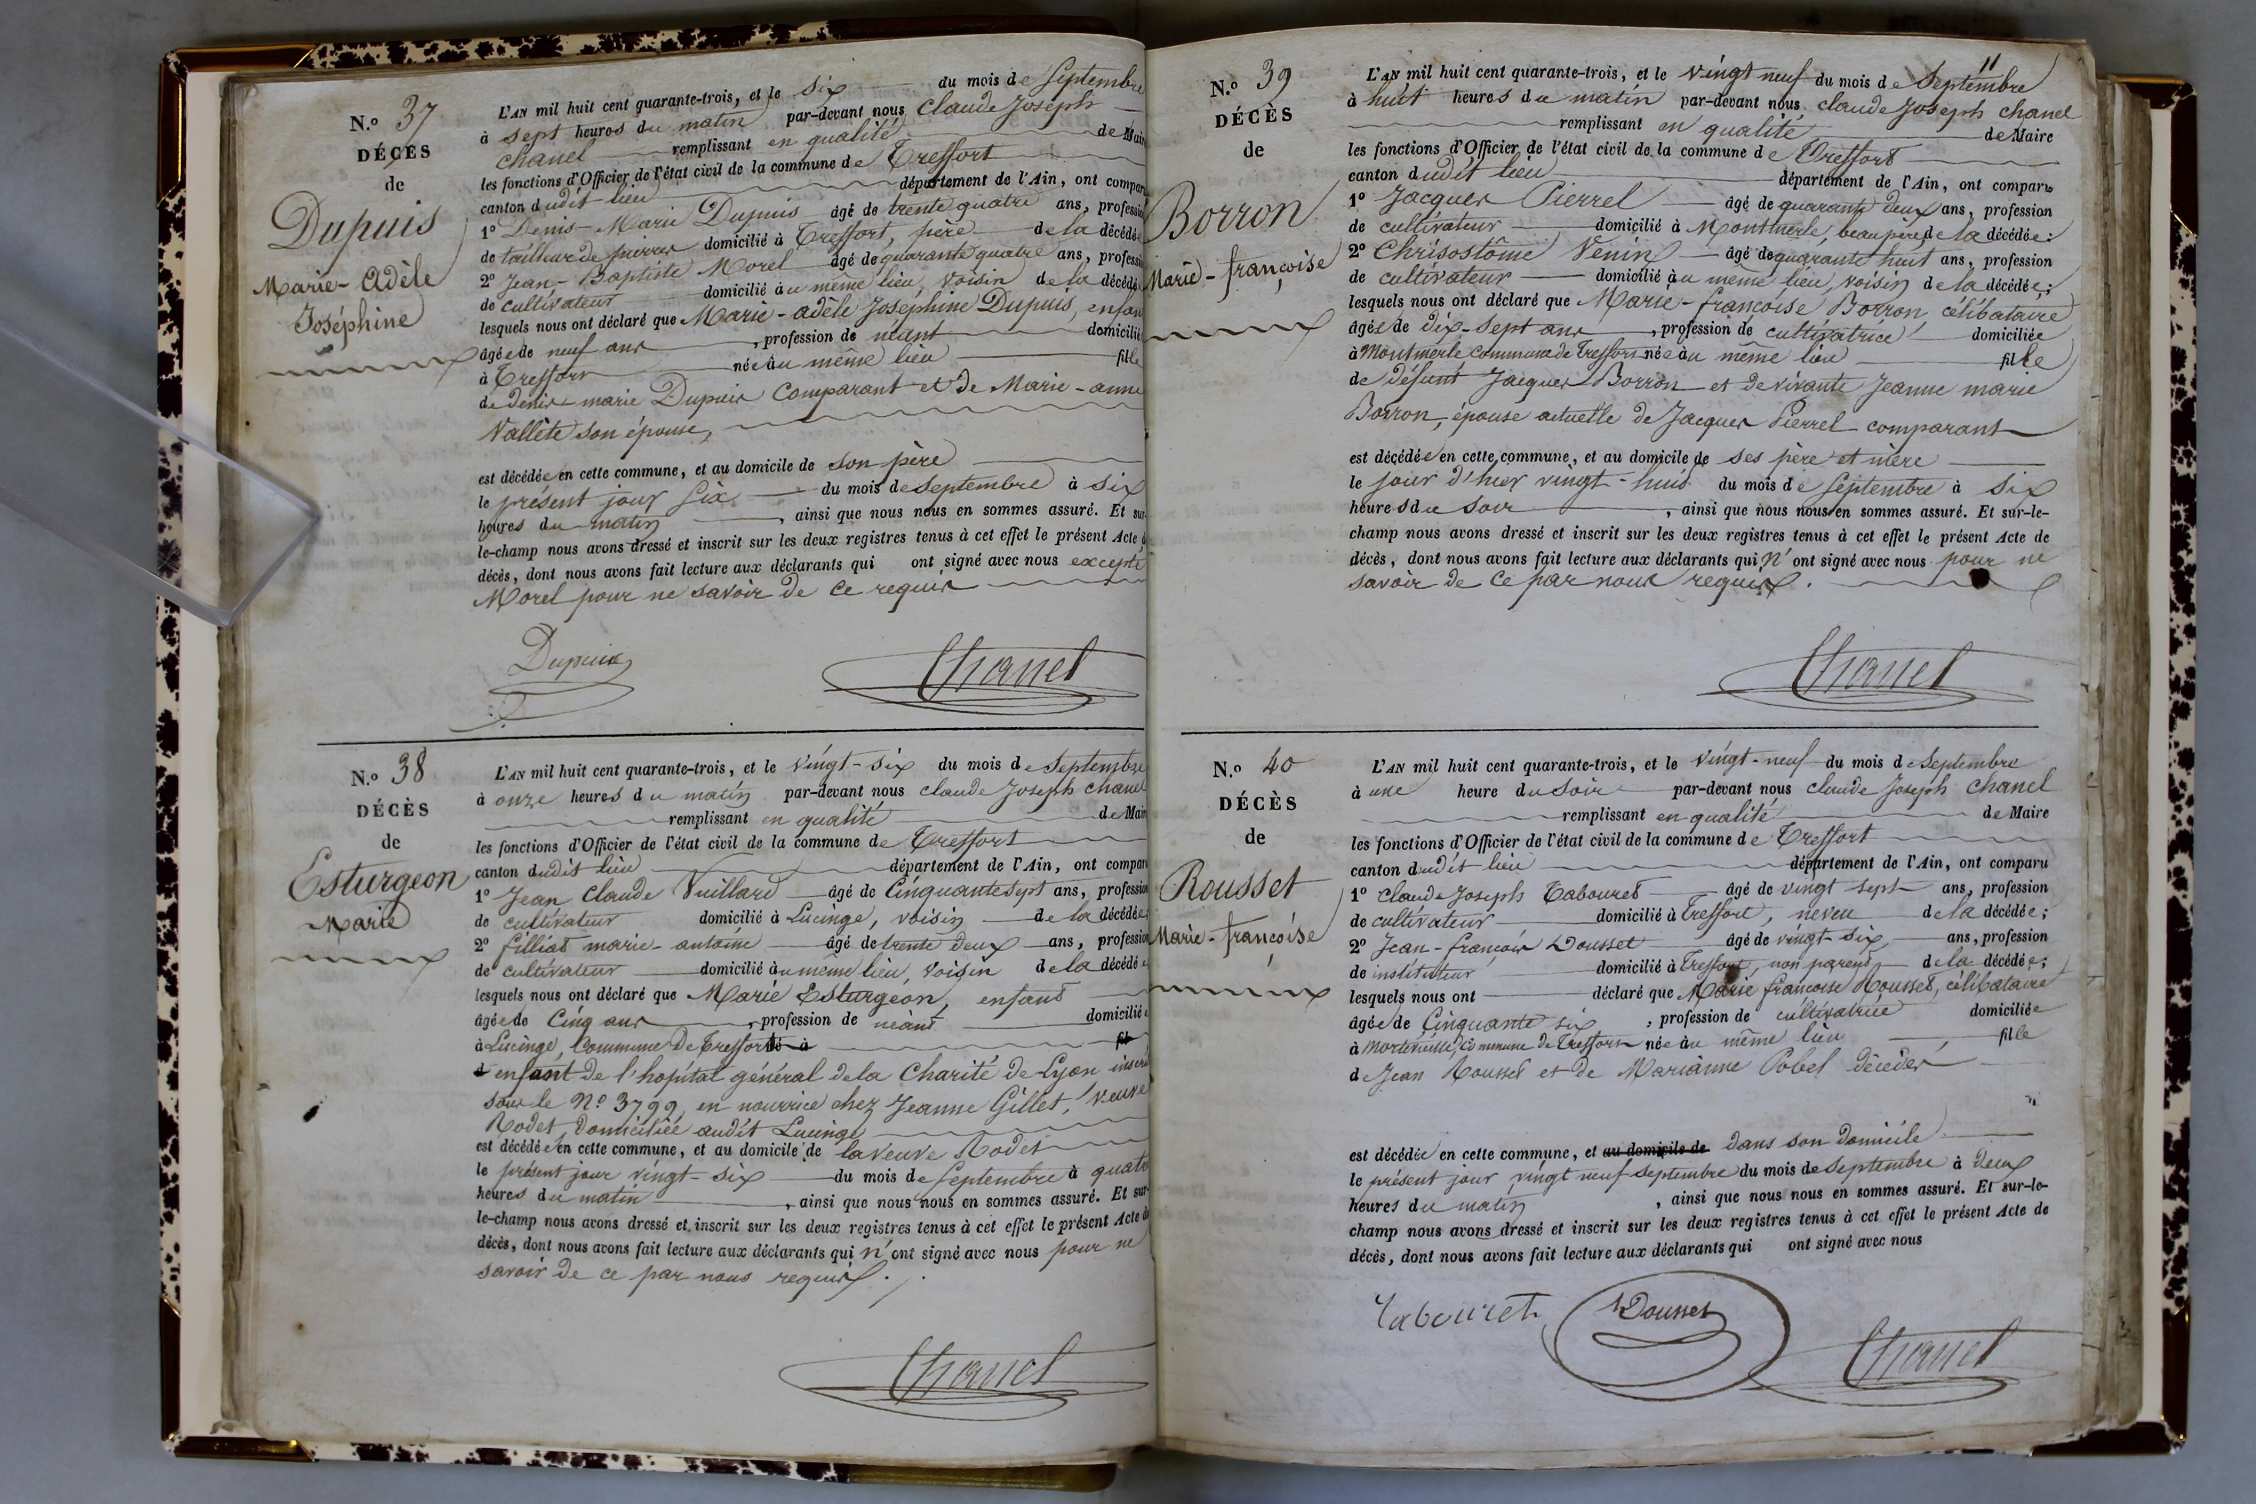 N.º 37
DÉCÈS
de
Dupuis
Marie-Adèle
Joséphine
L'AN mil huit cent quarante-trois, et le six du mois de Septembre
à sept heures du matin par-devant nous Claude Joseph
Chanel remplissant en qualité de Maire
les fonctions d'Officier de l'état civil de la commune de Treffort
canton dudit lieu département de l'Ain, ont comparu
1º Denis-Marie Dupuis âgé de trente quatre ans, profession
de tailleur de pierres domicilié à Treffort, père de la décédée
2º Jean-Baptiste Morel âgé de quarante quatre ans, profession
de cultivateur domicilié au même lieu, voisin de la décédée
lesquels nous ont déclaré que Marie-adèle Joséphine Dupuis, enfant
âgée de neuf ans, profession de néant domiciliée
à Treffort née au même lieu fille
de Denis-marie Dupuis Comparant et de Marie-anne
Vallète son épouse,
est décédée en cette commune, et au domicile de son père
le présent jour six du mois de Septembre à six
heures du matin, ainsi que nous nous en sommes assuré. Et sur-
le-champ nous avons dressé et inscrit sur les deux registres tenus à cet effet le présent Acte de
décès, dont nous avons fait lecture aux déclarants qui ont signé avec nous excepté
Morel pour ne savoir de ce requis
Dupuis
Chanel
N.º 38
DÉCÈS
de
Esturgeon
Marie
L'AN mil huit cent quarante-trois, et le vingt-six du mois de Septembre
à onze heures du matin par-devant nous claude Joseph Chanel
remplissant en qualité de Maire
les fonctions d'Officier de l'état civil de la commune de Treffort
canton dudit lieu département de l'Ain, ont comparu
1º Jean Claude Vuillard âgé de Cinquante sept ans, profession
de cultivateur domicilié à Lucinge, voisin de la décédée
2º filliat marie-antoine âgé de trente deux ans, profession
de cultivateur domicilié au même lieu, voisin de la décédée
lesquels nous ont déclaré que Marie Esturgeon, enfant
âgée de Cinq ans, profession de néant domiciliée
à Lucinge, Commune de Treffort né à fil
d enfant de l'hopital général de la Charité de Lyon inscrit
sous le Nº 3799, en nourrice chez Jeanne Gillet, veuve
Rodet domiciliée audit Lucinge
est décédée en cette commune, et au domicile de la veuve Rodet
le présent jour vingt-six du mois de Septembre à quatre
heures du matin, ainsi que nous nous en sommes assuré. Et sur-
le-champ nous avons dressé et inscrit sur les deux registres tenus à cet effet le présent Acte de
décès, dont nous avons fait lecture aux déclarants qui n'ont signé avec nous pour ne
savoir de ce par nous requis.
Chanel
11
N.º 39
DÉCÈS
de
Borron
Marie-françoise
L'AN mil huit cent quarante-trois, et le vingt neuf du mois de Septembre
à huit heures du matin par-devant nous claude Joseph chanel
remplissant en qualité de Maire
les fonctions d'Officier de l'état civil de la commune de Treffort
canton dudit lieu département de l'Ain, ont comparu
1º Jacques Pierrel âgé de quarante deux ans, profession
de cultivateur domicilié à Montmerle, beau père de la décédée:
2º Chrisostôme Venin âgé de quarante huit ans, profession
de cultivateur domicilié au même lieu, voisin de la décédée;
lesquels nous ont déclaré que Marie-francoise Borron, célibataire
âgée de dix-sept ans, profession de cultivatrice domiciliée
à Montmerle commune de Treffort née au même lieu fille
de défunt Jacques Borron et de vivante Jeanne marie
Borron, épouse actuelle de Jacques Pierrel comparant
est décédée en cette commune, et au domicile de ses père et mère
le jour d'hier vingt-huit du mois de Septembre à six
heures du soir, ainsi que nous nous en sommes assuré. Et sur-le-
champ nous avons dressé et inscrit sur les deux registres tenus à cet effet le présent Acte de
décès, dont nous avons fait lecture aux déclarants qui n'ont signé avec nous pour ne
savoir de ce par nous requis.
Chanel
N.º 40
DÉCÈS
de
Rousset
Marie-françoise
L'AN mil huit cent quarante-trois, et le vingt-neuf du mois de Septembre
à une heure du soir par-devant nous claude Joseph Chanel
remplissant en qualité de Maire
les fonctions d'Officier de l'état civil de la commune de Treffort
canton dudit lieu département de l'Ain, ont comparu
1º claude Joseph Tabouret âgé de vingt sept ans, profession
de cultivateur domicilié à Treffort, neveu de la décédée;
2º Jean-françois Dousset âgé de vingt-six ans, profession
de instituteur domicilié à Treffort, non parent de la décédée;
lesquels nous ont déclaré que Marie francoise Rousset, célibataire
âgée de Cinquante six, profession de cultivatrice domiciliée
à commune de Treffort née au même lieu fille
de Jean Rousset et de Marianne Pobel décédés
est décédée en cette commune, et au domicile de dans son domicile
le présent jour vingt neuf septembre du mois de Septembre à deux
heures du matin, ainsi que nous nous en sommes assuré. Et sur-le-
champ nous avons dressé et inscrit sur les deux registres tenus à cet effet le présent Acte de
décès, dont nous avons fait lecture aux déclarants qui ont signé avec nous
Tabouret
Dousset
Chanel